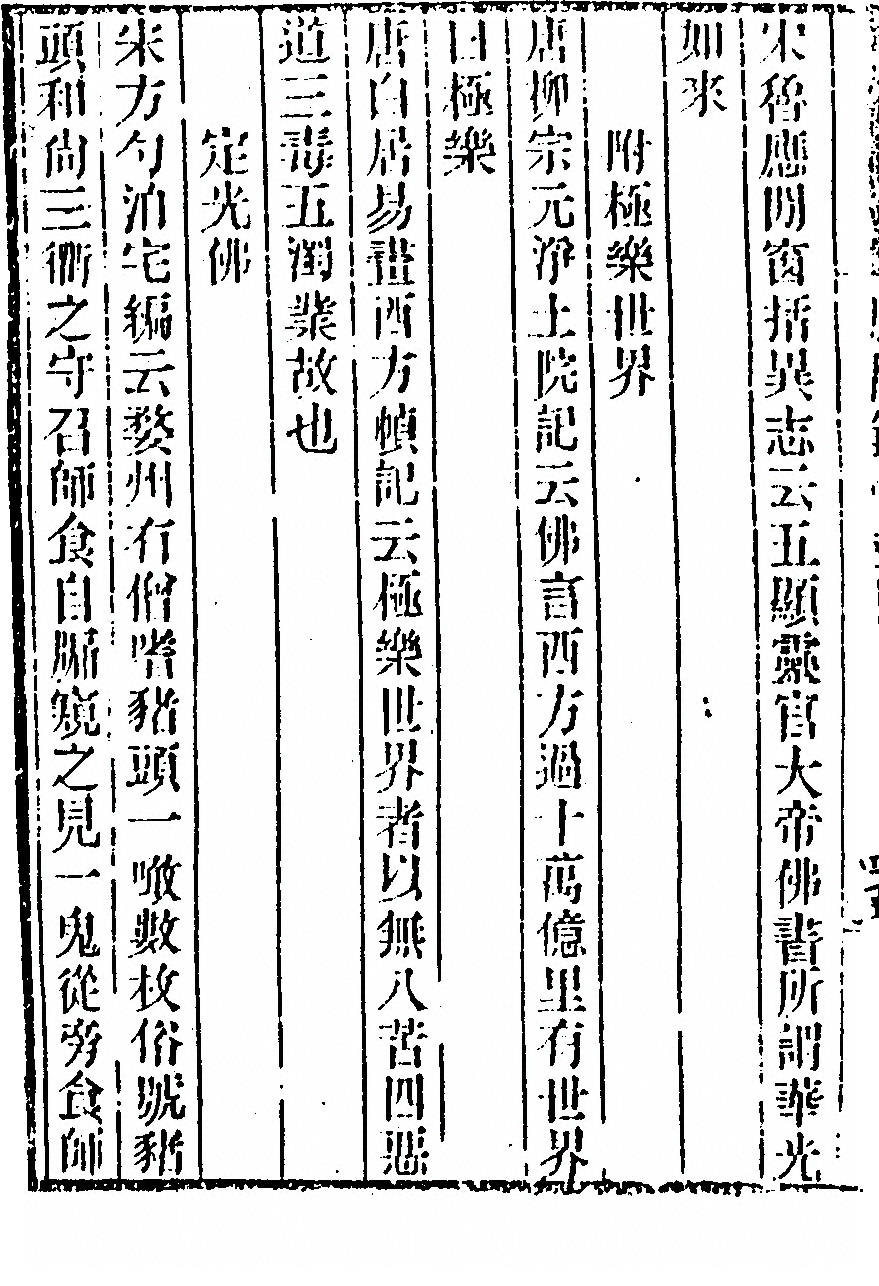 宋魯應龍閒窗括異志云五顯靈官大帝佛書所謂華光
如來
附極樂世界
唐柳宗元淨土院記云佛言西方過十萬億里有世界
曰極樂
唐白居易畫西方幀記云極樂世界者以無八苦四惡
道三毒五濁業故也
定光佛
宋方勺泊宅編云婺州有僧嗜豬頭一噉數枚俗號豬
頭和尚三衢之守召師食自牖窺之見一鬼從旁食師